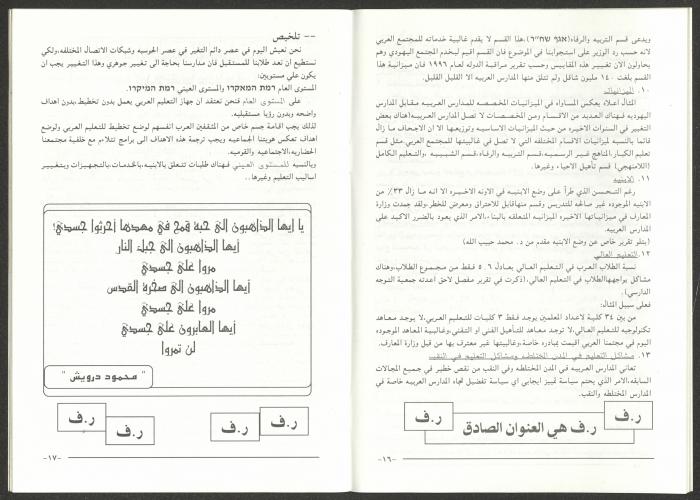 ويدعى قسم التربيه والرفاه(אגף שח"ר)،هذا القسم لا يقدم غالبية خدماته للمجتمع العربي
لانه حسب رد الوزير على استجوابنا في الموضوع فان القسم اقيم ليخدم المجتمع اليهودي وهم
يحاولون الان تغيير هذه المقاييس وحسب تقرير مراقبة الدوله لعام ١٩٩٦ فان ميزانية هذا
القسم بلغت ١٤٠ مليون شاقل ولم تتلق منها المدارس العربيه الا القليل القليل.
١٠. الميزانيات
المثال اعلاه يعكس المساواه في الميزانيات المخصصه للمدارس العربيه مقابل المدارس
اليهوديه فهناك العديد من الاقسام ومن المخصصات لا تصل المدارس العربيه(هناك بعض
التغيير في السنوات الاخيره من حيث الميزانيات الاساسيه وتوزيعها الا ان الاجحاف ما زال
قائما بالنسبه لميزانيات الاقسام المختلفه التي لا تصل في غالبيتها للمجتمع العربي،مثل قسم
تعليم الكبار،المناهج غير الرسميه،قسم التربيه والرفاه،قسم الشبيبه ،والتعليم الكامل
(اللامنهجي) قسم تأهيل الاحياء وغيرها.
١١. الابنيه
رغم التحسن الذي طرأ على وضع الابنيه في الاونه الاخيره الا انه ما زال ٣٣٪ من
الابنيه الموجوده غير صالحه للتدريس وقسم منهاقابل للاحتراق ومعرض للخطر،ولقد جمدت وزارة
المعارف في ميزانياتها الاخيره الميزانيه المتعلقه بالبناء،الامر الذي يعود بالضرر الاكبد على
المدارس العربيه.
(يتلو تقرير خاص عن وضع الابنيه مقدم من د. محمد حبيب الله)
١٢.التعليم العالي
نسبة الطلاب العرب في التعليم العالي بعادل ٥.٦ فقط من مجموع الطلاب،وهناك
مشاكل يواجههاالطلاب في التعليم العالي،(ذكرت في تقرير مفصل لاحق اعدته جمعية التوجه
الدارسي).
فعلى سبيل المثال:
من بين ٣٤ كلية لاعداد المعلمين يوجد فقط ٣ كليات للتعليم العربي،لا يوجد معاهد
تكنولوجيه للتعليم العالي،لا توجد معاهد للتأهيل الفني او التقني،وغالبية المعاهد الموجوده
اليوم في مجتمعنا العربي اقيمت بمبادره خاصة،وغالبيتها غير معترف بها من قبل وزارة المعارف.
١٣. مشاكل التعليم في المدن المختلطه ومشاكل التعليم في النقب
تعاني المدارس العربيه في المدن المختلطه وفي النقب من نقص خطير في جميع المجالات
السابقه،الامر الذي يحتم سياسة تمييز ايجابي اي سياسة تفضيل تجاه المدارس العربيه خاصة في
المدارس المختلطه والنقب.
ر.ف
ر.ف هي العنوان الصادق
ر.ف
-١٦-
-- تلخيص
نحن نعيش اليوم في عصر دائم التغير في عصر الحوسبه وشبكات الاتصال المختلفه،ولكي
نستطيع ان نعد طلابنا للمستقبل فان مدارسنا بحاجة الى تغيير جوهري وهذا التغيير يجب ان
يكون على مستويين:
المستوى العام רמת המאקרו والمستوى العيني רמת המיקרו.
على المستوى العام فنحن نعتقد ان جهاز التعليم العربي يعمل بدون تخطيط،بدون اهداف
واضحه وبدون رؤيا مستقبليه.
لذلك يجب اقامة جسم خاص من المثقفين العرب انفسهم لوضع تخطيط للتعليم العربي ولوضع
اهداف تعكس هويتنا الجماعيه ويجب ترجمة هذه الاهداف الى برامج تتلاءم مع خلفية مجتمعنا
الحضاريه،الاجتماعيه والقوميه.
وبالنسبه للمستوى العيني فهناك طلبات تتعلق بالابنيه،بالخدمات،بالتجهيزات وبتغيير
اساليب التعليم وغيرها..
يا ايها الذاهبون الى حبة قمح في مهدها أحرثوا جسدي!
أيها الذاهبون الى جبل النار
مروا على جسدي
أيها الذاهبون الى صخرة القدس
مروا على جسدي
أيها العابرون على جسدي
لن تمروا
" محمود درويش "
ر.ف
ر.ف
ر.ف
ر.ف
-١٧-